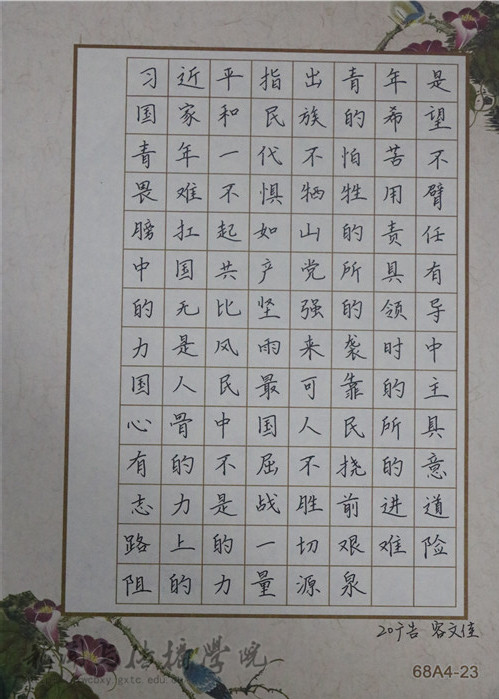 习近平指出青年是
国家和民族的希望
青年一代不怕苦不
畏难不惧牺牲用臂
膀扛起如山的责任
中国共产党所具有
的无比坚强的领导
力是风雨来袭时中
国人民最可靠的主
心骨中国人民所具
有的不屈不挠的意
志力是战胜前进道
路上的一切艰难险
阻的力量源泉
20广告 容文佳
传播学院
68A4-23